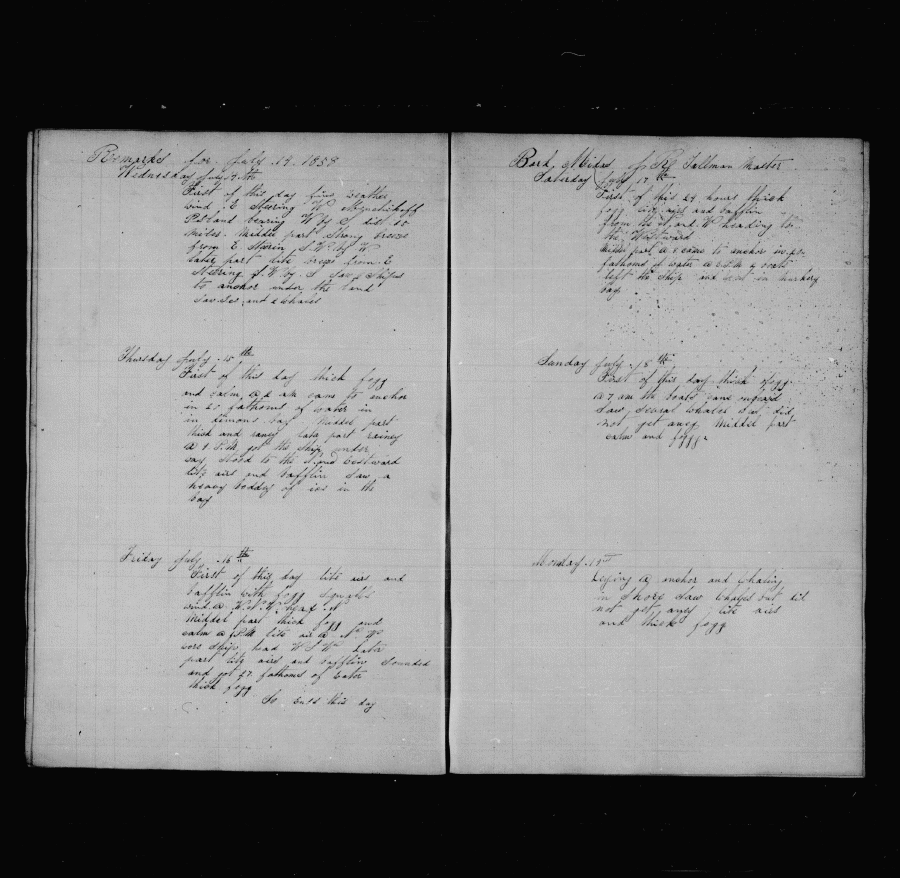 Remarks for July 14 1858
Wednesday July 14th
First of this day fine Weather
wind E Steering W
bearing W by S dist 20
Miles. Middle part Strong breeze
from E Sterin S.W. by W
later part lite breze from E
Steering S.W. by S Saw 2 Ships
to anchor under the land
Saw ice and 2 Whales
Thursday July 15th
First of this day thick fogg
and calm, a 2 AM came to anchor
in 20 fathoms of water in
in bay Middel part
thick and raney lata part rainey
a 1 P.M. got the Ship under
way Stood to the S and Eastward
lite airs and bafflin Saw a
heavy boddey of ice in the
bay
Friday July 16th
First of this day lite airs and
bafflin with fogg Squalls
wind a W.N.W.
Middel part thick fogg and
calm a P.M lite air a N W
Ship head W S W Later
part lite airs and bafflin Sounded
and got 27 fathoms of water
thick fogg
So Ends this day
Bark Midas of Tallman Master
Saturday July 17th
First of this 24 hours thick
fogg lite airs and bafflin
from the N and W heading to
the Westward
Middel part a came to anchor in
fathoms of water a P.M 4 boats
left the Ship and went in
bay
Sunday July 18th
First of this day thick fogg
a 7 am the boats came onboard
Saw Several whales but did
not get aney Middel part
calm and foggy
Monday 19th
Leying a anchor and whaling
in Shore Saw whales but did
not get aney lite airs
and thick fogg